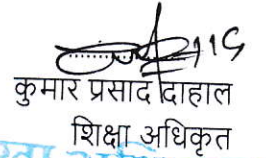 कुमार प्रसाद दाहाल
शिक्षा अधिकृत